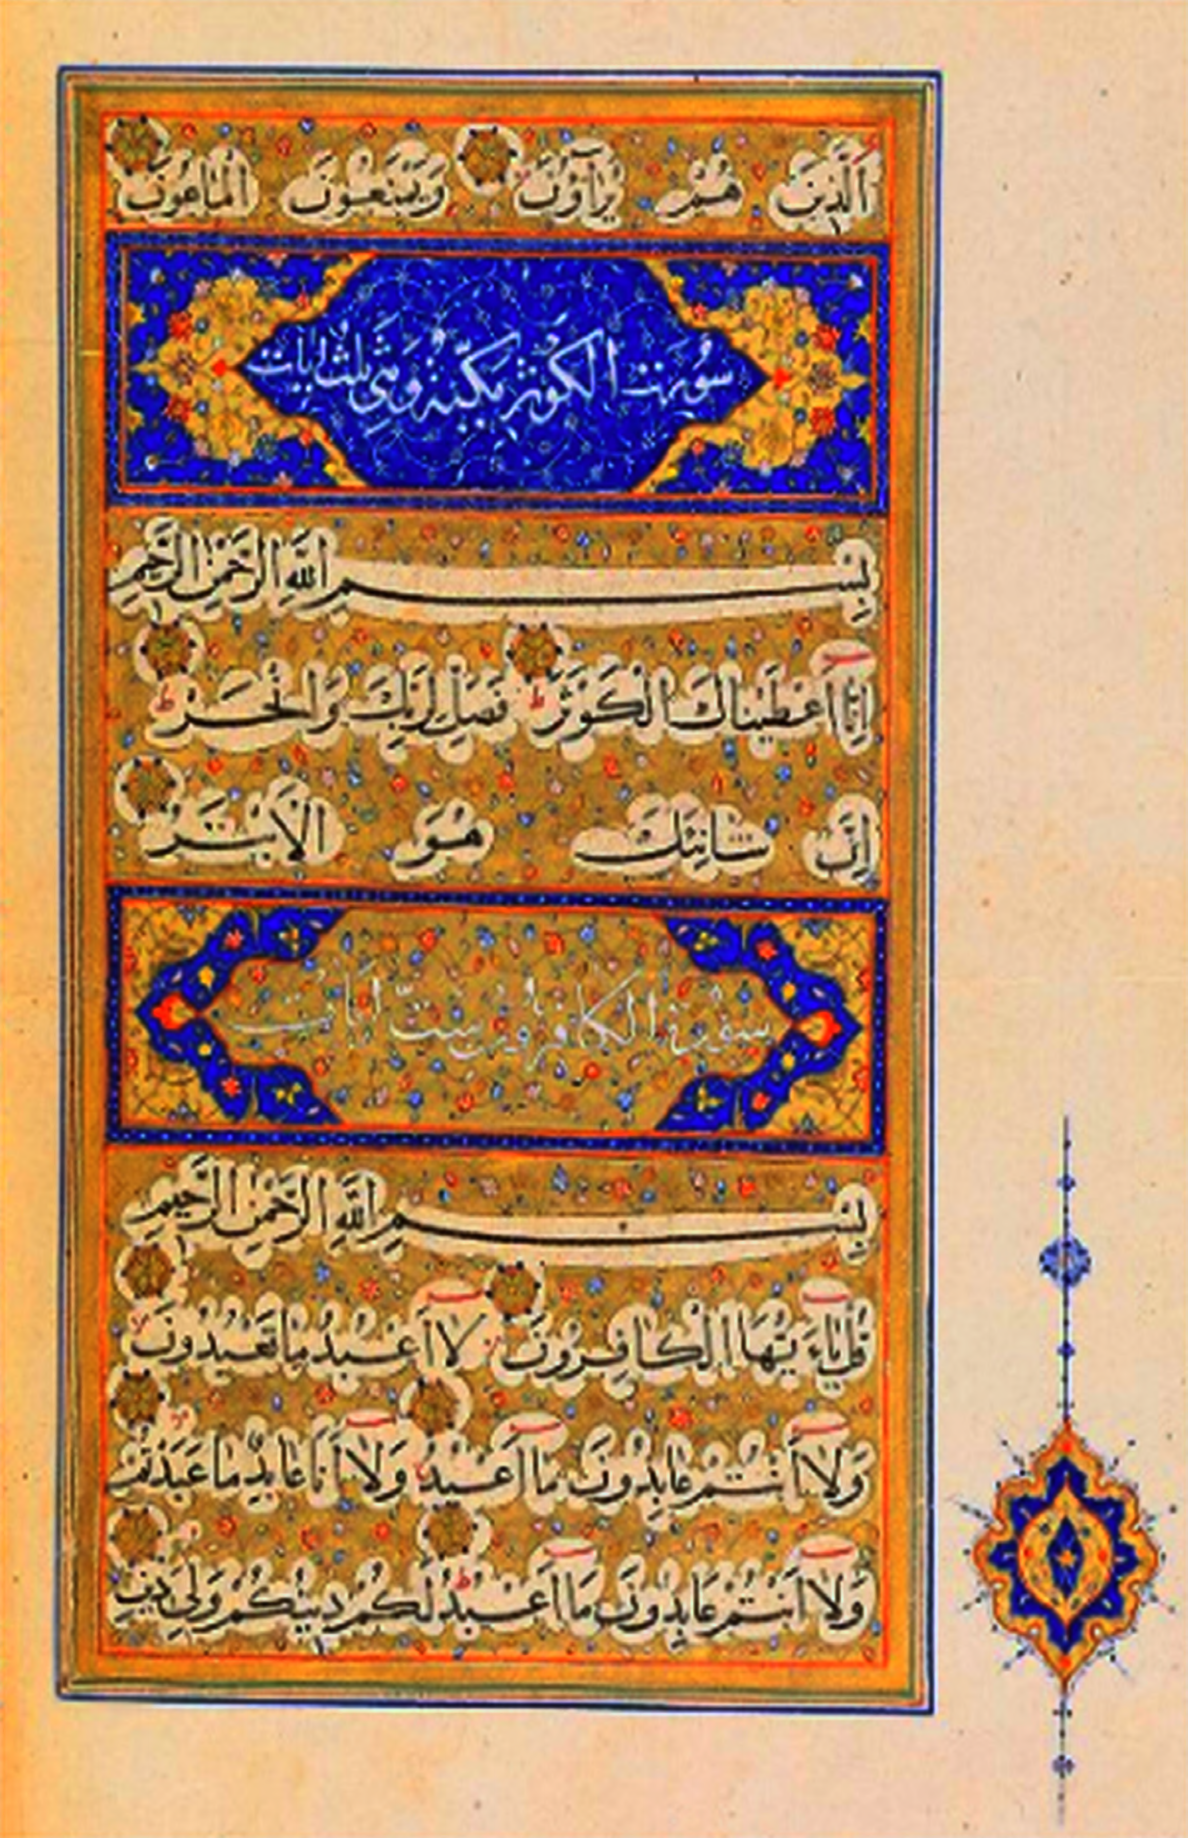 اَلَّذِينَ هُمْ يُرَآؤُنَ وَيَمْنَعُونَ الْمَاعُونَ
سُورَت الكَوْثَرِ مَكِّيَةٌ وَهِيَ ثلث ايات
بِسْمِ اللّٰهِ الرَّحْمٰنِ الرَّحِيمِ
اِنَّا اَعْطَيْنَاكَ الْكَوْثَرَ فَصَلِّ لِرَبِّكَ وَانْحَرْ
اِنَّ شَانِئَكَ هُوَ الْاَبْتَرُ
سورة الكافرون ست ايات
بِسْمِ اللّٰهِ الرَّحْمٰنِ الرَّحِيمِ
قُلْ يَاءَيُّهَا الْكَافِرُونَ لَا اَعْبُدُ مَا تَعْبُدُونَ
وَلَا اَنْتُمْ عَابِدُونَ مَا اَعْبُدُ وَلَا اَنَا عَابِدٌ مَا عَبَدْتُمْ
وَلَا اَنْتُمْ عَابِدُونَ مَا اَعْبُدُ لَكُمْ دِينُكُمْ وَلِيَ دِينِ